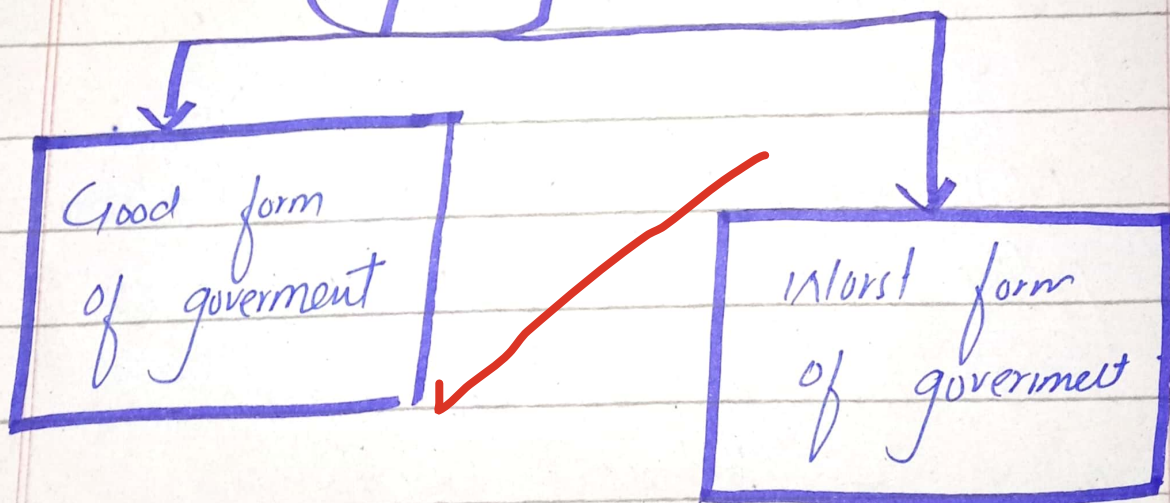 Good form
of goverment
Worst form
of goverment